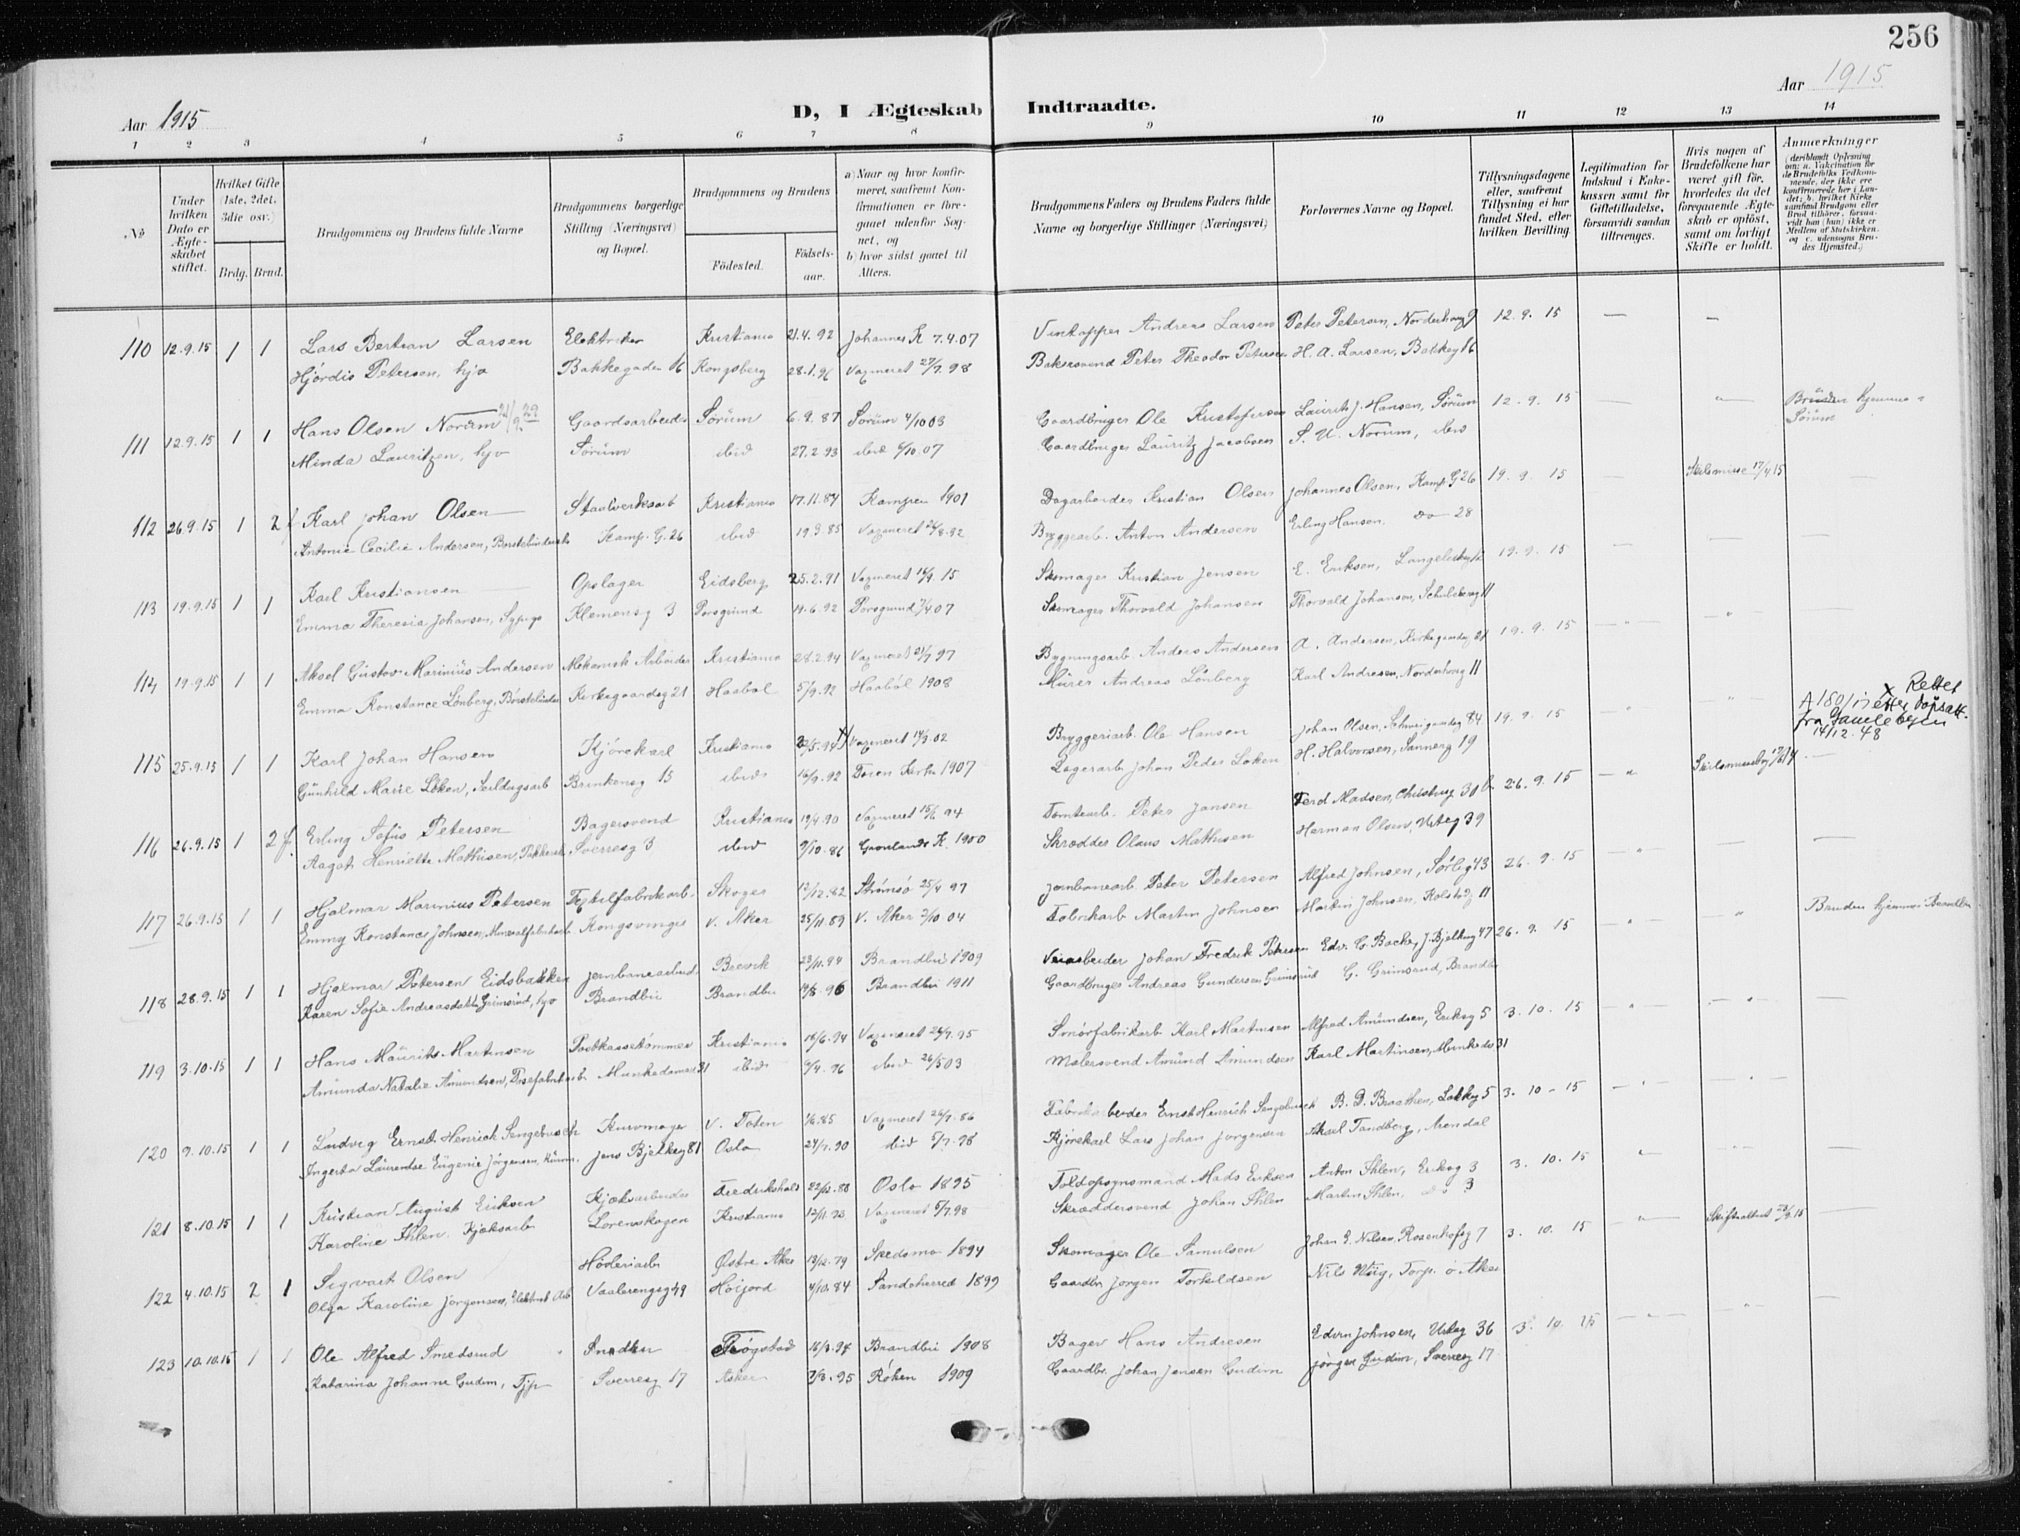 256
Aar 1915
D, I Ægteskab Indtraadte.
Aar 1915
1 2 3 4 5 6 7 8 9 10 11 12 13 14
No
Under hvilken Dato er Ægteskabet stiftet.
Hvilket Gifte (1ste, 2det, 3die osv.)
Brdg. Brud.
Brudgommens og Brudens fulde Navne
Brudgommens borgerlige Stilling (Næringsvei) og Bopæl.
Brudgommens og Brudens
Fødested. Fødselsaar.
a) Naar og hvor konfirmeret, saafremt Konfirmationen er foregaaet udenfor Sognet, og
b) hvor sidst gaaet til Alters.
Brudgommens Faders og Brudens Faders fulde Navne og borgerlige Stillinger (Næringsvei)
Forlovernes Navne og Bopæl.
Tillysningsdagene eller, saafremt Tillysning ei har fundet Sted, efter hvilken Bevilling
Legitimation for Indskud i Enkekassen samt for Giftetilladelse, forsaavidt saadan tiltrænges.
Hvis nogen af Brudefolkene har været gift før, hvorledes da det foregaaende Ægteskab er opløst, samt om lovligt Skifte er holdt.
Anmærkninger
(deriblandt Oplysning om: a. Vakcination for de Brudefolks Vedkommende, der ikke ere konfirmerede her i Landet; b. hvilket Kirkesamfund Brudgom eller Brud tilhører, forsaavidt han (hun) ikke er Medlem af Statskirken, og c. udensogns Brudes Hjemsted.)
110 12.9.15 1 1 Lars Bertran Larsen Elektriker Kristiania 21.4.92 Johannes K 7.4.07 Vintapper Andreas Larsen Peter Petersen, Norderhovg 9 12.9.15 — —
Hjørdis Petersen, hjv Bakkegaden 16 Kongsberg 28.1.96 Vazineret 27/7.98 Bakersvend Peter Theodor Petersen H. A. Larsen, Bakkeg 16
111 12.9.15 1 1 Hans Olsen Norum 21/2 29 Gaardsarbeider Sørum 6.9.87 Sørum 4/10 03 Gaardbruger Ole Kristofersen Laurits J. Hansen, Sørum 12.9.15 — " Bruden hjemme i Sørum
Minda Lauritzen, hjv Sørum ibid 27.2.93 ibid 6/10.07 Gaardbruger Lauritz Jacobsen S. U. Norum, ibid
112 26.9.15 1 2 f Karl Johan Olsen Staalverksarb Kristiania 17.11.84 Kampen 1901 Dagarbeider Kristian Olsen Johannes Olsen, Kamp G 26 19.9.15 — Skilsmisse 17/4.15
Antonie Cecilie Andersen, Børstebinderske Kamp. G. 26 ibid 19.3.85 Vazineret 26/8.92 Byggearb. Anton Andersen Erling Hansen. do 28
113 19.9.15 1 1 Karl Kristiansen Opslager Eidsberg 25.2.91 Vazineret 14/9 15 Skomager Kristian Jensen E. Eriksen, 19.9.15 — — —
Emma Theresia Johansen, Sypige Klemensg 3 Porsgrund 14.6.92 Porsgrund 7/4 07 Skomager Thorvald Johansen Thorvald Johansen, 11
114 19.9.15 1 1 Aksel Gustav Marinius Andersen Mekanisk Arbeider Kristiania 28.2.94 Vazineret 21/7 97 Bygningsarb. Anders Andersen A. Andersen, Kirkegaardsg 21 19.9.15 — " — "
Emma Konstance Lönberg, Børstebinder Kirkegaardsg 21 Haabøl 5/9.92 Haabøl 1908 Murer Andreas Lönberg Karl Andresen, Norderhovg 11
115 25.9.15 1 1 Karl Johan Hansen Kjørekarl Kristiania 22/5.94 X Vazineret 14/3.02 Bryggeriarb. Ole Hansen Johan Olsen, Schweigaardsg 84 19.9.15 — " A 180/17 X Rettet efter dåpsatt. fra Gamlebyen 14/12.48
Gunhild Marie Løken, Seildugsarb Brinkensg 15 ibid 16/9.92 Toien Kirke 1907 Lagerarb. Johan Peder Loken H. Halvorsen, Sannerg 19
116 26.9.15 1 2 f. Erling Sofus Petersen Bagersvend Kristiania 19/4.90 Vazineret 15/6 94 Tomtearb. Peter Jansen Ferd Madsen, 30 b 26.9.15 — " —
Aagot Henriette Mathisen, Sverresg 3 ibid 9/10.86 Grønlands K. 1900 Skrædder Olaus Mathisen Herman Olsen, Urteg 39
117 26.9.15 1 1 Hjalmar Marinius Petersen Textilfabrikarb. Skoger 12/12.82 Strømsø 25/4 97 Jernbanearb Peter Petersen Alfred Johnsen, Sørlig 43 26.9.15 — " — —
Emmy Konstance Johnsen, Mineralfabrikarb Kongsvingerg V. Aker 25/11.89 V. Aker 2/10 04 Fabrikarb Martin Johnsen Martin Johnsen, Kolstadg 11
118 28.9.15 1 1 Hjalmar Petersen Eidsbakken Jernbanearbeid Brevik 23/11.94 Brandbu 1909 Veiarbeider Johan Fredrik Petersen Edv. G. Backe, J. Bjelkeg 47 26.9.15 — " — " Bruden hjemme i Brandbu
Karen Sofie Andreasdatter Grimsrud, hjv Brandbu Brandbu 19/8.96 Brandbu 1911 Gaardbruger Andreas Gundersen Grimsrud G. Grimsrud, Brandbu
119 3.10.15 1 1 Hans Mauritz Martinsen Postkassetømmer Kristiania 16/6.94 Vazineret 24/7.95 Smørfabrikarb Karl Martinsen Alfred Amundsen, Eriksg 5 3.10.15 — " — " —
Amunda Natalie Amundsen, Munkedamsv 31 ibid 9/4.96 ibid 26/5 03 Malersvend Amund Amundsen Karl Martinsen, Munkedv 31
120 9.10.15 1 1 Ludvig Ernst Henrich Sengebusch Kurvmager V. Toten 1/6.85 Vazineret 26/7.86 Fabrikarbeider Ernst Henrich Sengebusch B. D. Braathen, Lakkeg 5 3.10-15 — " — " —
Ingerta Laurentse Eugenie Jørgensen, Jens Bjelkeg 81 Oslo 24/7.90 ibid 5/7.98 Kjørekarl Lars Johan Jørgensen Aksel Tandberg, Arendal
121 8.10.15 1 1 Kristian August Eriksen Kjæksarbeider Fredrikshald 22/12.80 Oslo 1895 Toldopsynsmand Mads Eriksen Anton Ihlen, Eriksg 3 3.10.15 " — " —
Karoline Ihlen. Kjæksarb Lorenskogen Kristiania 12/11.93 Vazineret 5/7.98 Skræddersvend Johan Ihlen Martin Ihlen, do 3
122 4.10.15 2 1 Sigvart Olsen Høvleriarb Østre Aker 13/12.79 Skedsmo 1894 Skomager Ole Samulsen Johan E. Nilsen, Rosenhofsg 7 3.10.15 " — Skifteattest 23/9.15 —
Olga Karoline Jørgensen, Vaalerengsg 49 Høijord 4/10.84 Sandeherred 1899 Gaardbr Jørgen Torkildsen Nils Torp. Ø. Aker
123 10.10.15 1 1 Ole Alfred Smedsrud Snedker Trøgstad 18/3.94 Brandbu 1908 Bager Hans Andresen Edvin Johnsen, Urteg 36 3.10.15 — " — " —
Katarina Johanne Gudim, Tjp Sverresg 17 Asker 7/3.95 Røken 1909 Gaardbr. Johan Jensen Gudim Jørgen Gudim, Sverresg 17